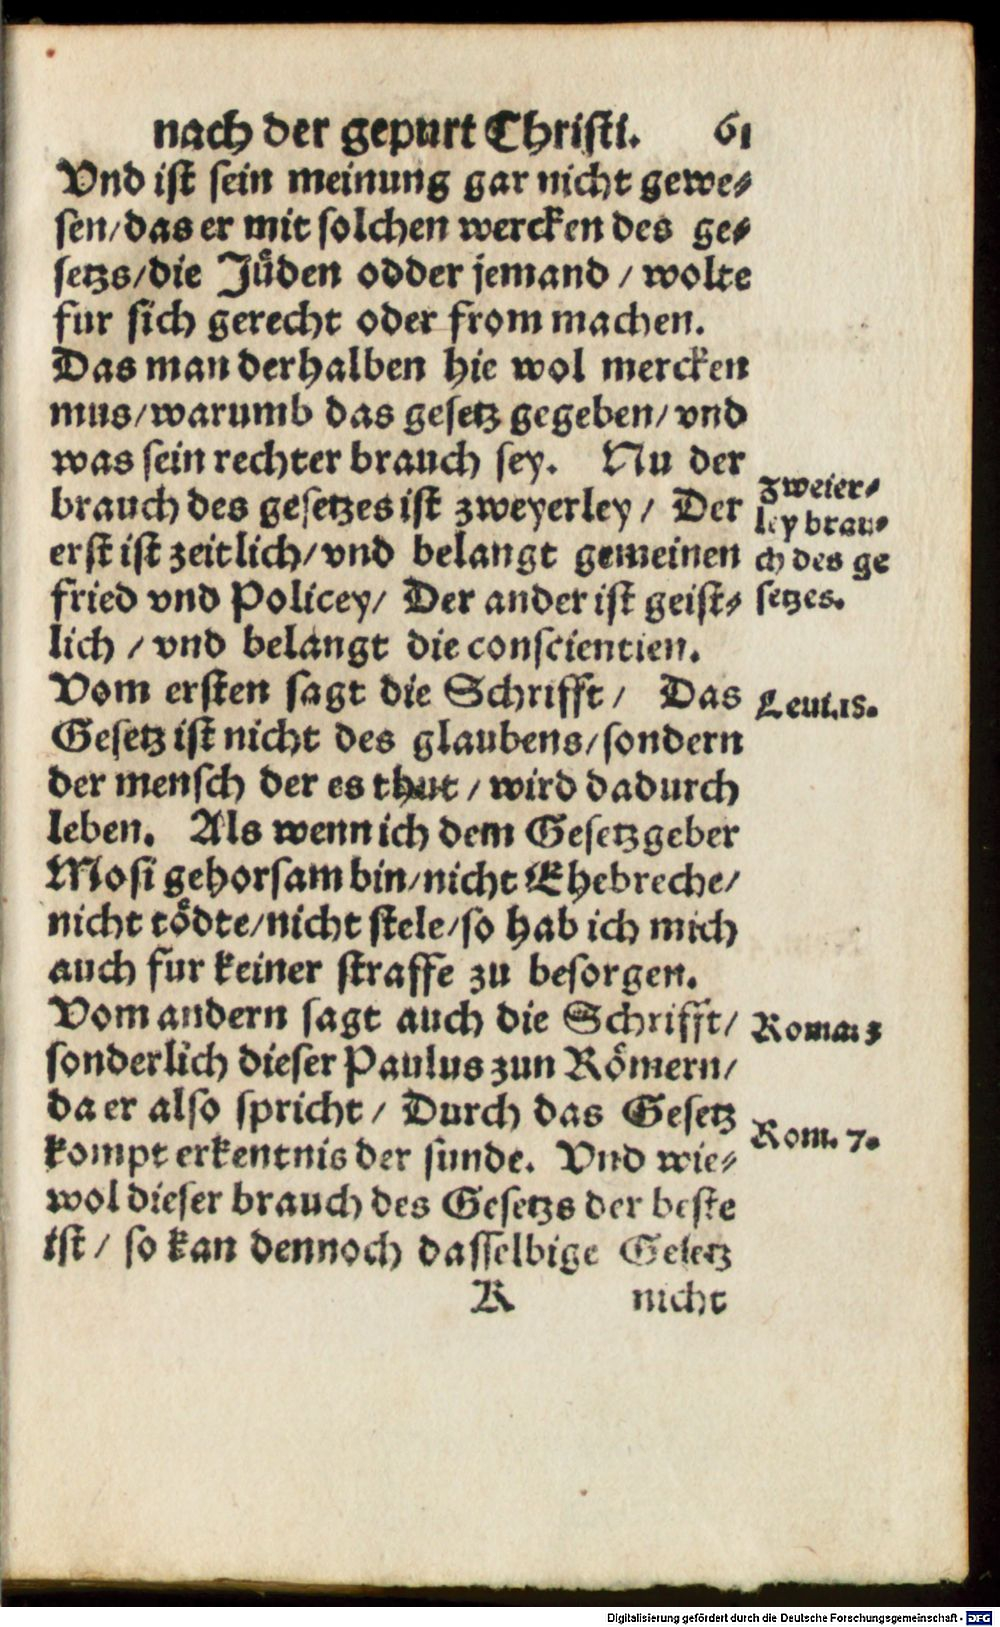 nach der gepurt Christi. 61
Vnd ist sein meinung gar nicht gewe⸗
sen/das er mit solchen wercken des ge⸗
setzs/die Jüden odder jemand / wolte
fur sich gerecht oder from machen.
Das man derhalben hie wol mercken
mus/warumb das gesetz gegeben/vnd
was sein rechter brauch sey. Nu der
brauch des gesetzes ist zweyerley / Der
erst ist zeitlich/vnd belangt gemeinen
fried vnd Policey/ Der ander ist geist⸗
lich / vnd belangt die conscientien.
zweier⸗
ley brau⸗
ch des ge
setzes.
Vom ersten sagt die Schrifft / Das
Gesetz ist nicht des glaubens/sondern
der mensch der es thut / wird dadurch
leben. Als wenn ich dem Gesetzgeber
Mosi gehorsam bin/nicht Ehebreche/
nicht tödte/nicht stele/so hab ich mich
auch fur keiner straffe zu besorgen.
Leui.18.
Vom andern sagt auch die Schrifft/
sonderlich dieser Paulus zun Römern/
da er also spricht / Durch das Gesetz
kompt erkentnis der sunde. Vnd wie⸗
wol dieser brauch des Gesetzs der beste
ist / so kan dennoch dasselbige Gesetz
Roma: 3
Rom. 7.
K nicht
Digitalisierung gefördert durch die Deutsche Forschungsgemeinschaft - DFG